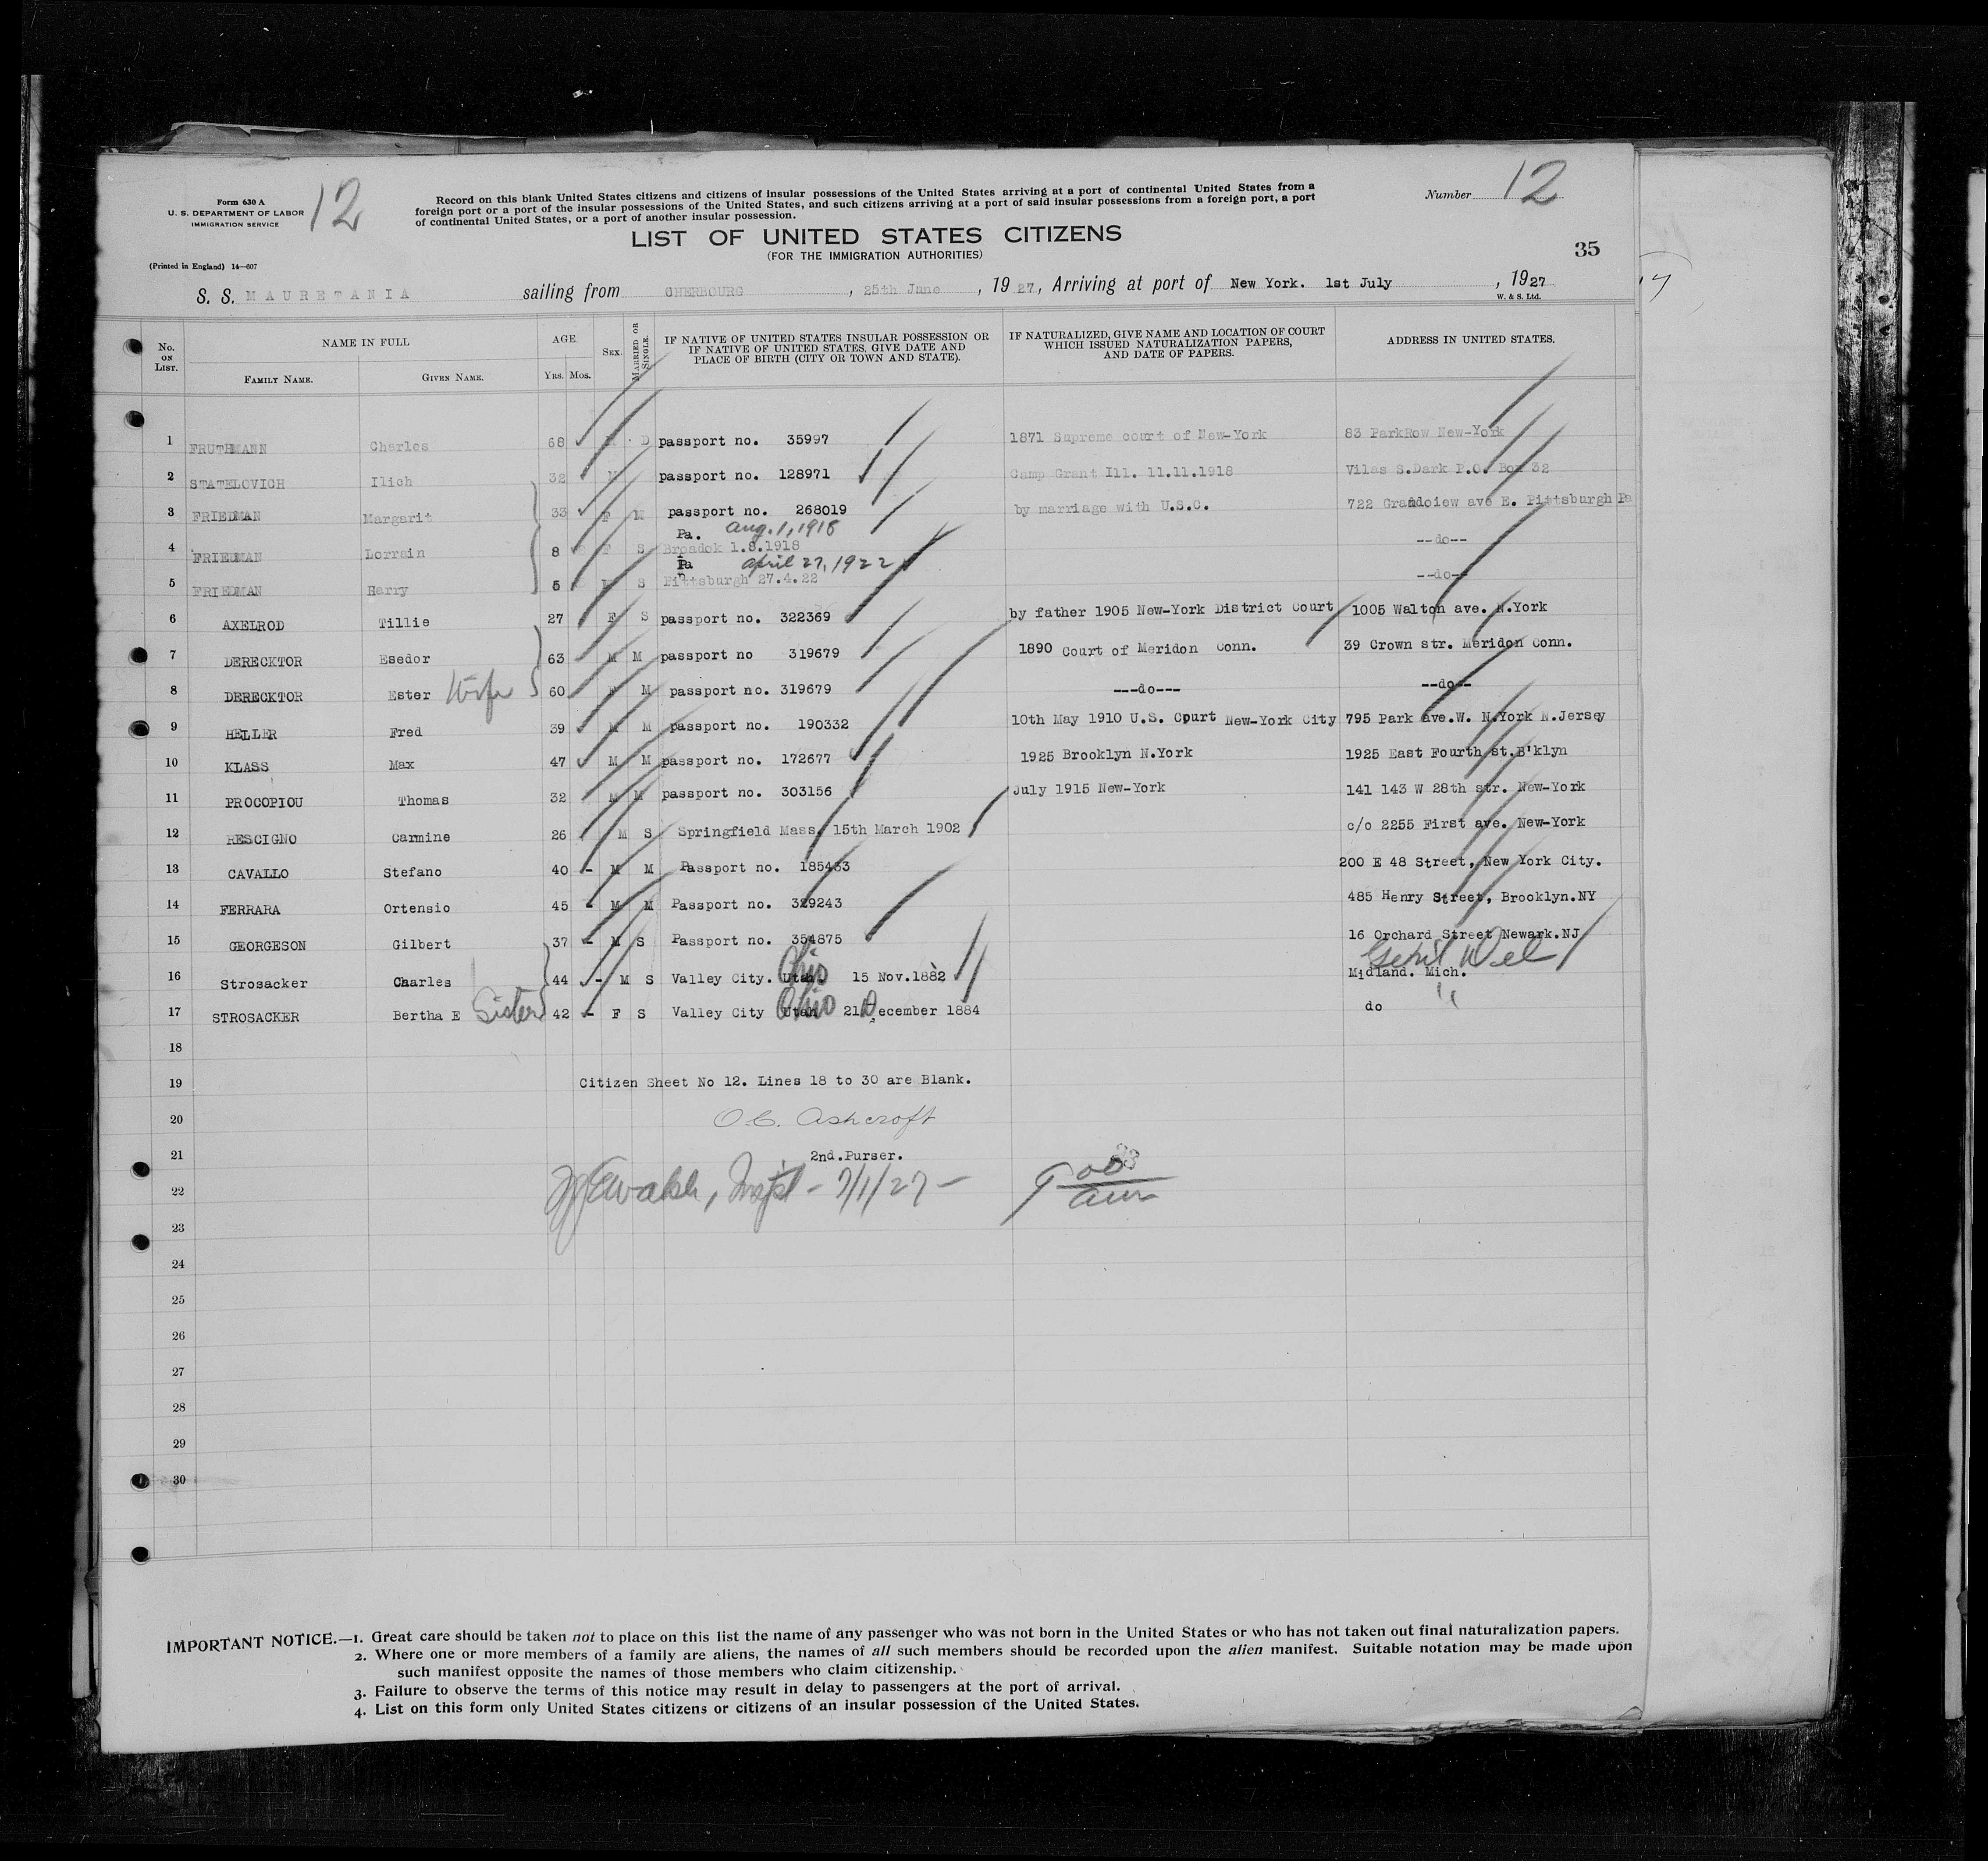 Form 630 A
U. S. DEPARTMENT OF LABOR
IMMIGRATION SERVICE
12
Record on this blank United States citizens and citizens of insular possessions of the United States arriving at a port of continental United States from a
foreign port or a port of the insular possessions of the United States, and such citizens arriving at a port of said insular possessions from a foreign port, a port
of continental United States, or a port of another insular possession.
Number 12
LIST OF UNITED STATES CITIZENS
(FOR THE IMMIGRATION AUTHORITIES)
35
(Printed in England) 14—607
S. S. MAURETANIA sailing from CHERBOURG, 25th June, 1927, Arriving at port of New York. 1st July, 1927
W. & S. Ltd.
No. ON LIST. NAME IN FULL FAMILY NAME. GIVEN NAME. AGE YRS. MOS. SEX. MARRIED OR SINGLE. IF NATIVE OF UNITED STATES INSULAR POSSESSION OR IF NATIVE OF UNITED STATES, GIVE DATE AND PLACE OF BIRTH (CITY OR TOWN AND STATE). IF NATURALIZED, GIVE NAME AND LOCATION OF COURT WHICH ISSUED NATURALIZATION PAPERS, AND DATE OF PAPERS. ADDRESS IN UNITED STATES.
1 FRUTHMANN Charles 68 D passport no. 35997 1871 Supreme court of New-York 83 ParkRow New-York
2 STATELOVICH Ilich 32 M passport no. 128971 Camp Grant Ill. 11.11.1918 Vilas S.Dark P.O. Box 32
3 FRIEDMAN Margarit 33 F M passport no. 268019 by marriage with U.S.C. 722 Grandoiew ave E. Pittsburgh Pa
Pa. Aug. 1, 1918
4 FRIEDMAN Lorrain 8 F S Bradok 1.8.1918 --do--
Pa April 27, 1922
5 FRIEDMAN Harry 5 S Pittsburgh 27.4.22 --do--
6 AXELROD Tillie 27 F S passport no. 322369 by father 1905 New-York District Court 1005 Walton ave. N.York
7 DERECKTOR Esedor 63 M M passport no 319679 1890 Court of Meridon Conn. 39 Crown str. Meridon Conn.
8 DERECKTOR Ester Wife 60 F M passport no. 319679 ---do--- --do--
9 HELLER Fred 39 M M passport no. 190332 10th May 1910 U.S. Court New-York City 795 Park ave.W. N.York N.Jersey
10 KLASS Max 47 M M passport no. 172677 1925 Brooklyn N.York 1925 East Fourth st.B'klyn
11 PROCOPIOU Thomas 32 M M passport no. 303156 July 1915 New-York 141 143 W 28th str. New-York
12 RESCIGNO Carmine 26 M S Springfield Mass, 15th March 1902 c/o 2255 First ave. New-York
13 CAVALLO Stefano 40 - M M Passport no. 185433 200 E 48 Street, New York City.
14 FERRARA Ortensio 45 - M M Passport no. 329243 485 Henry Street, Brooklyn.NY
15 GEORGESON Gilbert 37 - M S Passport no. 354875 16 Orchard Street Newark.NJ
16 Strosacker Charles 44 - M S Valley City. Utah. Ohio 15 Nov.1882 Midland. Mich.
17 STROSACKER Bertha E Sister 42 - F S Valley City Utah Ohio 21 December 1884 do "
18
19 Citizen Sheet No 12. Lines 18 to 30 are Blank.
20 O.C. Ashcroft
21 2nd.Purser.
22 Walsh, Inspt - 7/1/27 - 9 00 am
23
24
25
26
27
28
29
30
IMPORTANT NOTICE.—1. Great care should be taken not to place on this list the name of any passenger who was not born in the United States or who has not taken out final naturalization papers.
2. Where one or more members of a family are aliens, the names of all such members should be recorded upon the alien manifest. Suitable notation may be made upon
such manifest opposite the names of those members who claim citizenship.
3. Failure to observe the terms of this notice may result in delay to passengers at the port of arrival.
4. List on this form only United States citizens or citizens of an insular possession of the United States.